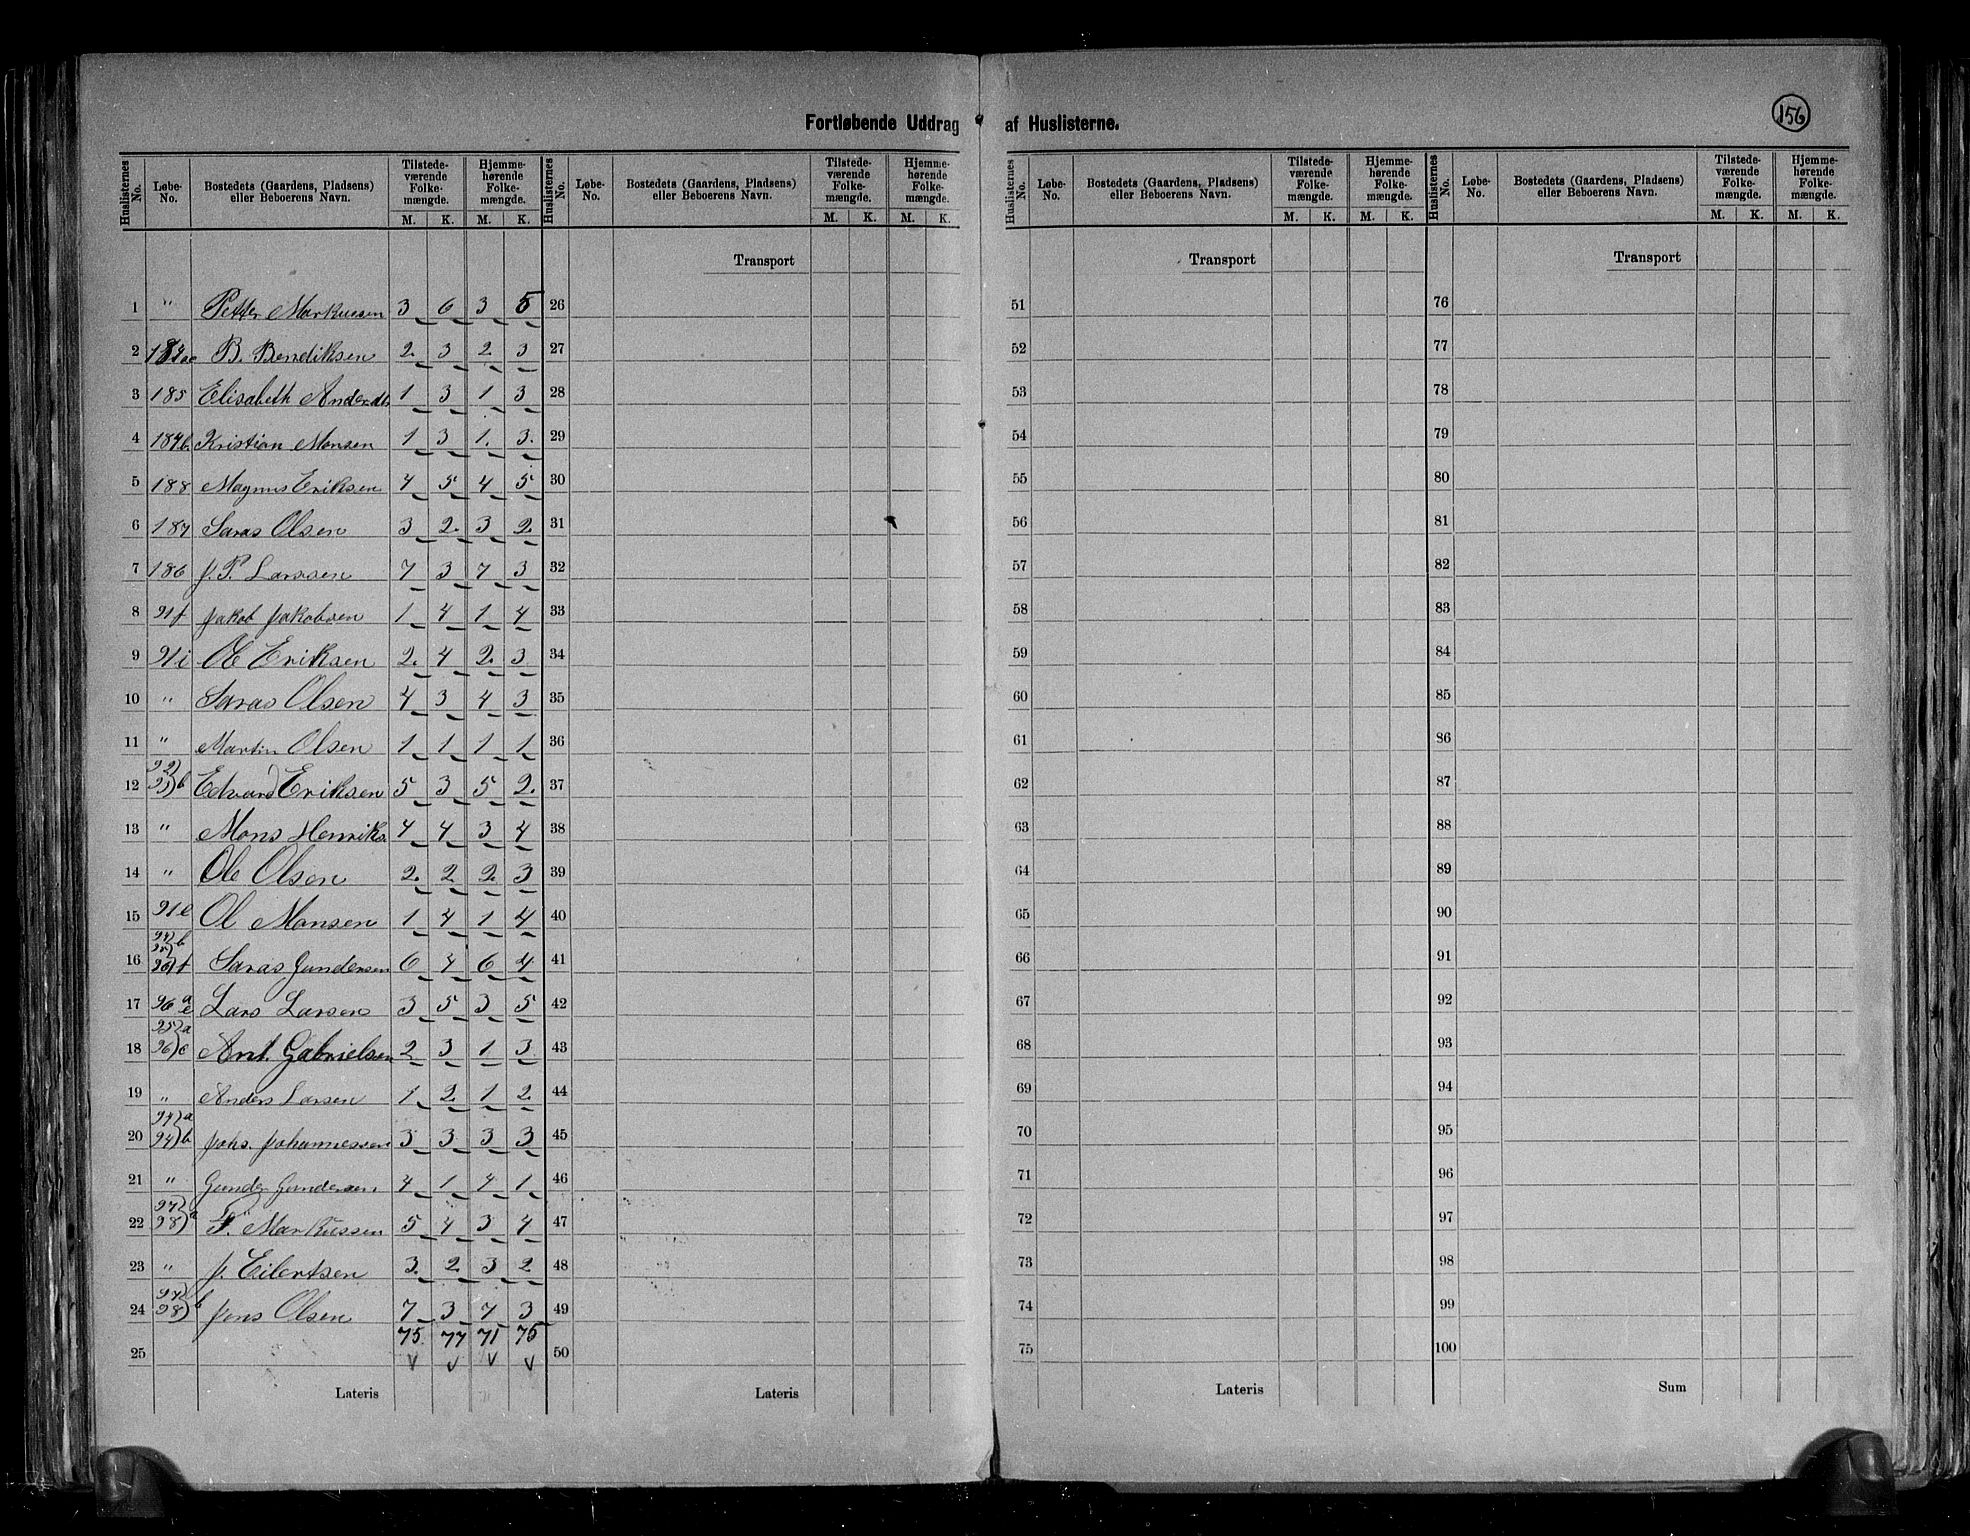 156
Fortløbende Uddrag af Huslisterne.
Huslisternes No. | Løbe-No. | Bostedets (Gaardens, Pladsens) eller Beboerens Navn. | Tilstede-værende Folke-mængde. M. K. | Hjemme-hørende Folke-mængde. M. K.
1 " Petter Markussen 3 6 3 5
2 B. Bendiksen 2. 3 2 3
3 185 Elisabeth Andersdt. 1 3 1 3
4 184b. Kristian Monsen 1 3 1. 3.
5 188 Magnus Eriksen 4 5 4 5
6 187 Saras Olsen 3 2. 3 2.
7 186 J. P. Larssen 7 3 7 3
8 91f Jakob Jakobsen 1 4 1 4
9 91i Ole Eriksen 2. 4 2. 3
10 " Saras Olsen 4 3 4 3
11 " Martin Olsen 1 1 1 1
12 Edvard Eriksen 5 3 5 2.
13 " Mons Henriks. 4 4 3 4
14 " Ole Olsen 2. 2. 2. 3
15 91e Ol Monsen 1 4 1 4
16 Saras Gundersen 6 4 6 4
17 96 a e Lars Larsen 3 5 3 5
18 95) a 96) c Ant. Gabrielsen 2 3 1 3
19 " Anders Larsen 1 2. 1 2.
20 94) b Johs. Johannessen 3 3 3 3
21 " Gunder Gundersen 4 1 4 1
22 97) 98) a F. Markussen 5 4 3 4
23 " J. Eilertsen 3. 2 3 2
24 97) 98) b Jens Olsen 7 3 7 3
75. 77 71 75
25
Lateris
Huslisternes No. | Løbe-No. | Bostedets (Gaardens, Pladsens) eller Beboerens Navn. | Tilstede-værende Folke-mængde. M. K. | Hjemme-hørende Folke-mængde. M. K.
Transport
26
27
28
29
30
31
32
33
34
35
36
37
38
39
40
41
42
43
44
45
46
47
48
49
50
Lateris
Huslisternes No. | Løbe-No. | Bostedets (Gaardens, Pladsens) eller Beboerens Navn. | Tilstede-værende Folke-mængde. M. K. | Hjemme-hørende Folke-mængde. M. K.
Transport
51
52
53
54
55
56
57
58
59
60
61
62
63
64
65
66
67
68
69
70
71
72
73
74
75
Lateris
Huslisternes No. | Løbe-No. | Bostedets (Gaardens, Pladsens) eller Beboerens Navn. | Tilstede-værende Folke-mængde. M. K. | Hjemme-hørende Folke-mængde. M. K.
Transport
76
77
78
79
80
81
82
83
84
85
86
87
88
89
90
91
92
93
94
95
96
97
98
99
100
Sum